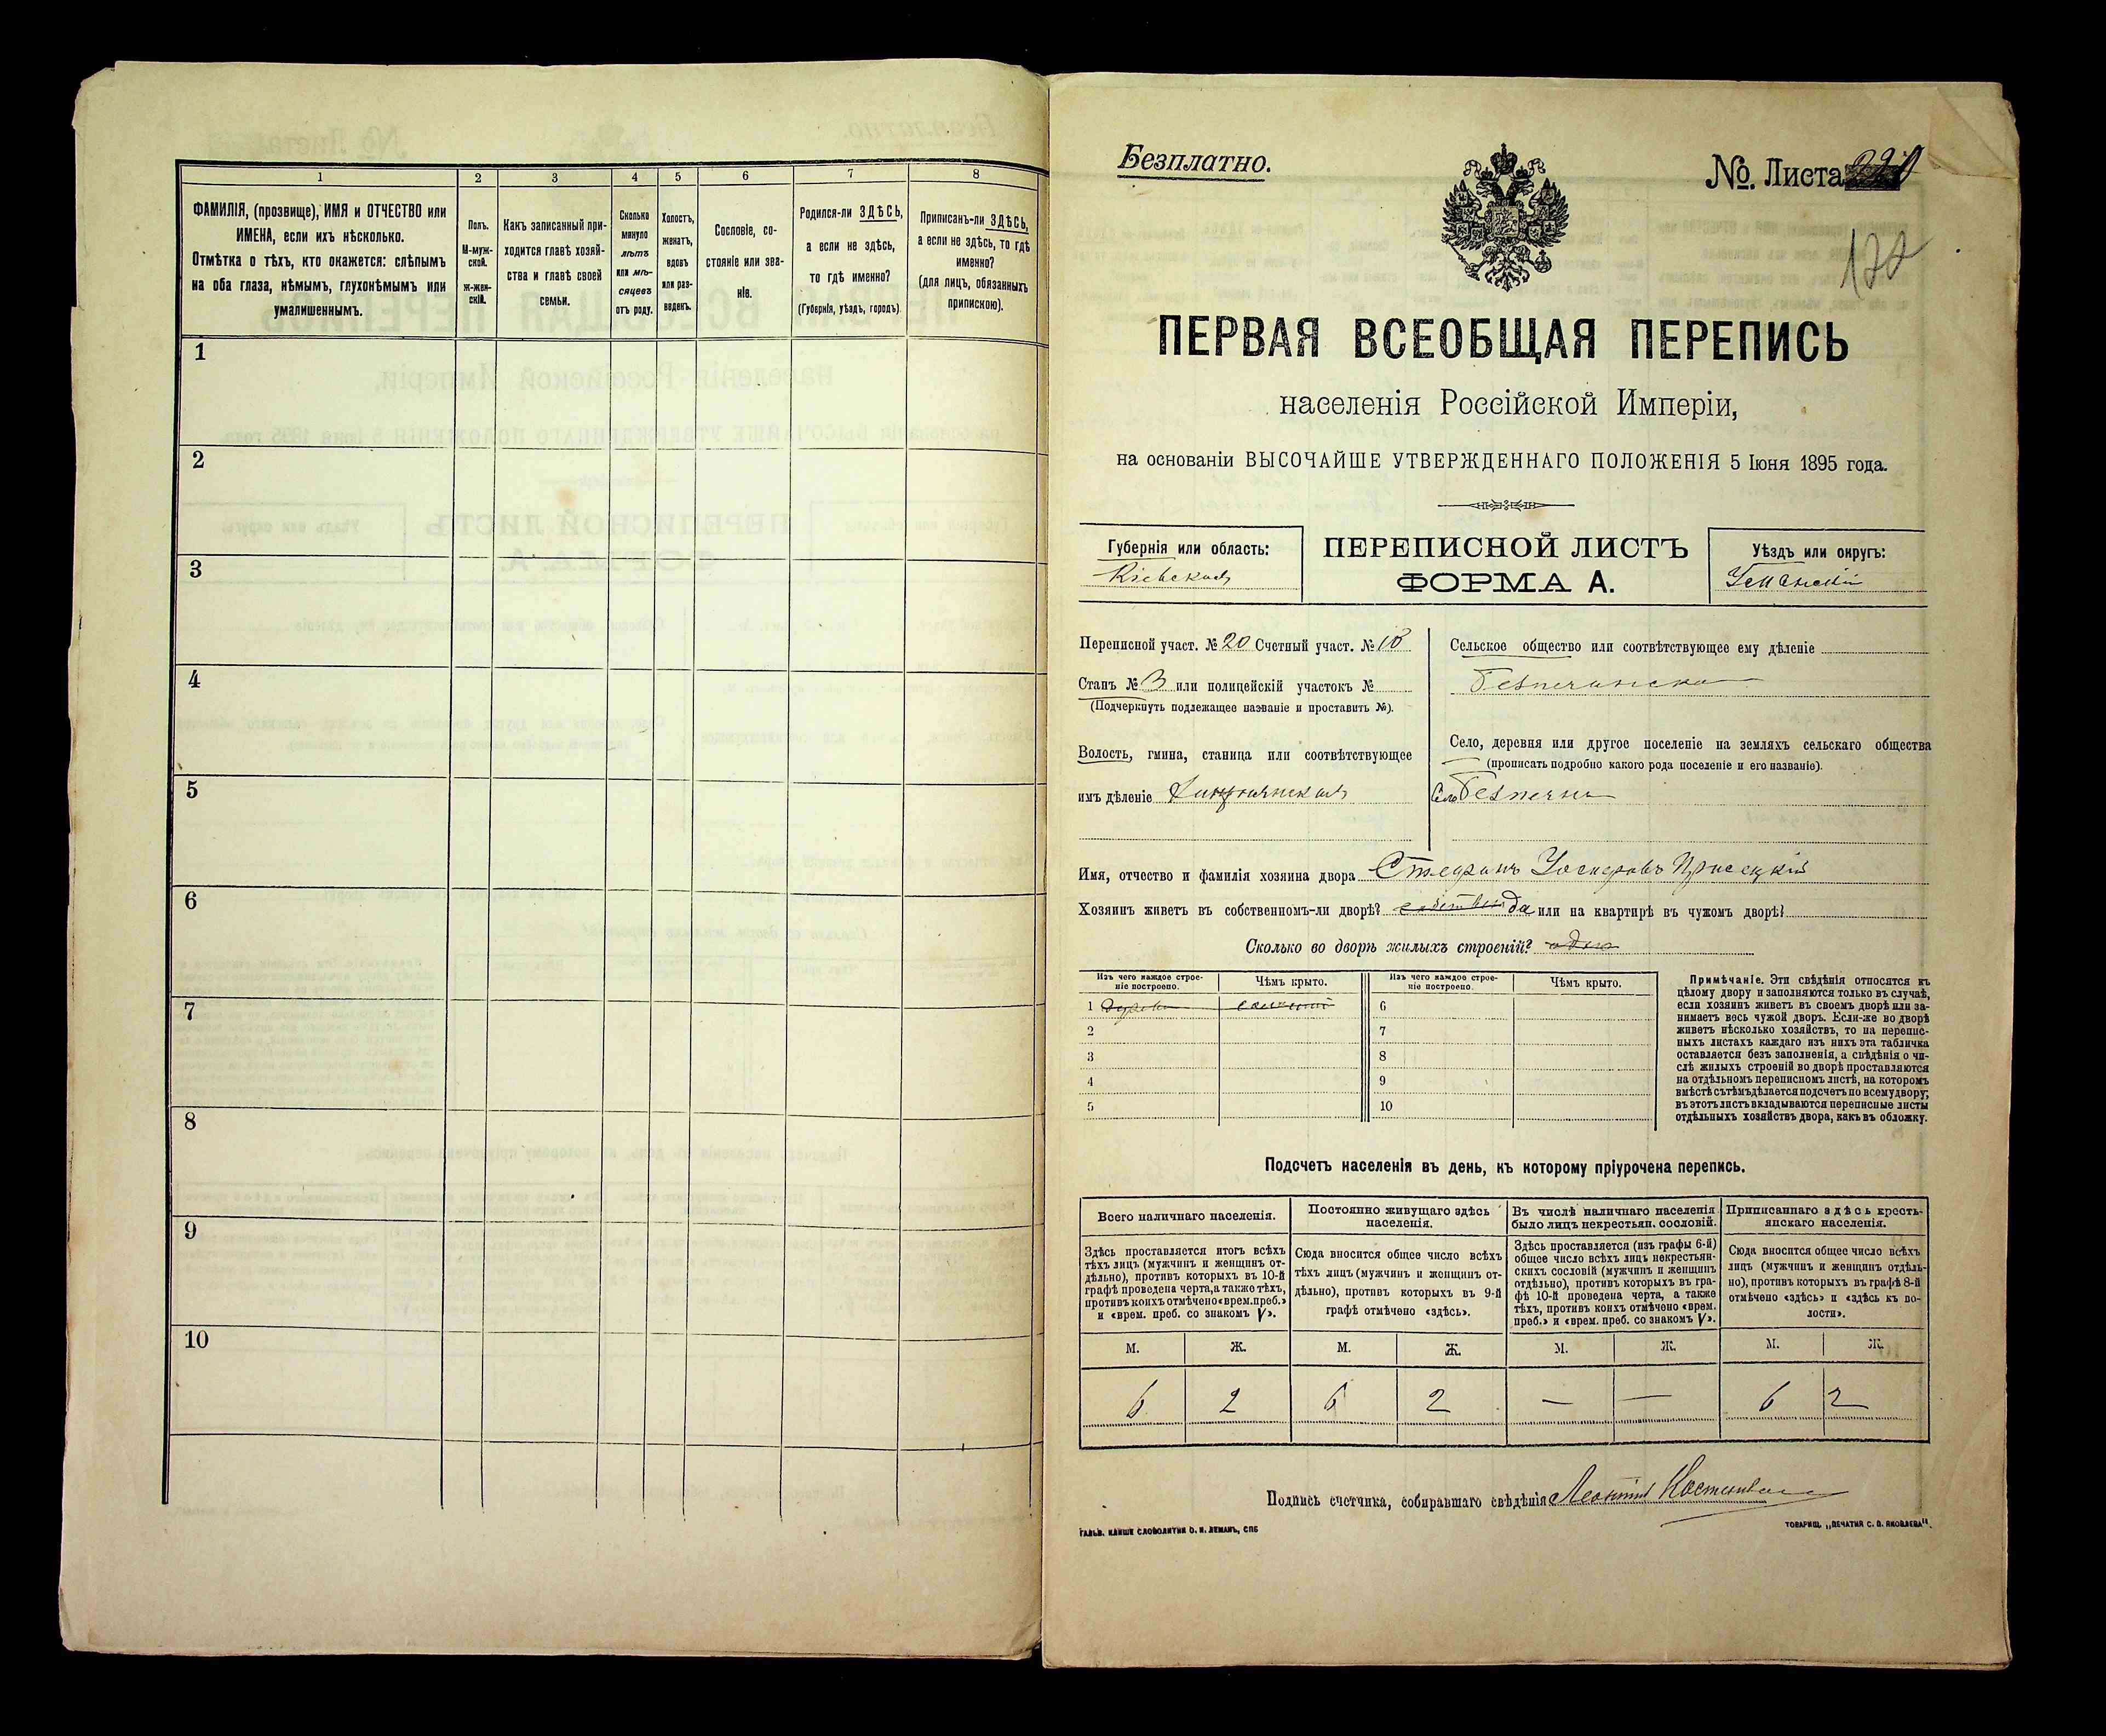 1
2
3
4
5
6
7
8
ФАМИЛІЯ, (прозвище), ИМЯ и ОТЧЕСТВО или
ИМЕНА, если ихъ нѣсколько.
Отмѣтка о тѣхъ, кто окажется: слѣпымъ
на оба глаза, нѣмымъ, глухонѣмымъ или
умалишеннымъ.
Полъ.
М-муж-
ской.
Ж-жен-
скій.
Какъ записанный при-
ходится главѣ хозяй-
ства и главѣ своей
семьи.
Сколько
минуло
лѣтъ
или мѣ-
сяцевъ
отъ роду.
Холостъ,
женатъ,
вдовъ
или раз-
веденъ.
Сословіе, со-
стояніе или зва-
ніе.
Родился-ли ЗДѢСЬ,
а если не здѣсь,
то гдѣ именно?
(Губернія, уѣздъ, городъ)
Приписанъ-ли ЗДѢСЬ,
а если не здѣсь, то гдѣ
именно?
(для лицъ, обязанныхъ
припискою).
1
2
3
4
5
6
7
8
9
10
Безплатно.
№. Листа
ПЕРВАЯ ВСЕОБЩАЯ ПЕРЕПИСЬ
населенія Россійской Имперіи,
на основаніи ВЫСОЧАЙШЕ УТВЕРЖДЕННАГО ПОЛОЖЕНІЯ 5 Іюня 1895 года.
Губернія или область:
Кіевская
ПЕРЕПИСНОЙ ЛИСТЪ
ФОРМА А.
Уѣздъ или округъ:
Уманскій
Переписной участ. № 20 Счетный участ. № 18
Станъ № 3 или полицейскій участокъ №
(Подчеркнуть подлежащее названіе и проставить №).
Волость, гмина, станица или соотвѣтствующее
имъ дѣленіе
Сельское общество или соотвѣтствующее ему дѣленіе
Село, деревня или другое поселеніе на земляхъ сельскаго общества
(прописать подробно какого рода поселеніе и его названіе).
Село
Имя, отчество и фамилія хозяина двора Стефанъ Присецкій
Хозяинъ живетъ въ собственномъ-ли дворѣ? да или на квартирѣ въ чужомъ дворѣ?
Сколько во дворѣ жилыхъ строеній? одно
Изъ чего каждое строе-
ніе построено.
Чѣмъ крыто.
Изъ чего каждое строе-
ніе построено.
Чѣмъ крыто.
1
2
3
4
5
6
7
8
9
10
Примѣчаніе. Эти свѣдѣнія относятся къ
цѣлому двору и заполняются только въ случаѣ,
если хозяинъ живетъ въ своемъ дворѣ или за-
нимаетъ весь чужой дворъ. Если-же во дворѣ
живетъ нѣсколько хозяйствъ, то на перепис-
ныхъ листахъ каждаго изъ нихъ эта табличка
оставляется безъ заполненія, а свѣдѣнія о чи-
слѣ жилыхъ строеній во дворѣ проставляются
на отдѣльномъ переписномъ листѣ, на которомъ
вмѣстѣ съ тѣмъ дѣлается подсчетъ по всему двору;
въ этотъ листъ вкладываются переписные листы
отдѣльныхъ хозяйствъ двора, какъ въ обложку.
Подсчетъ населенія въ день, къ которому пріурочена перепись.
Всего наличнаго населенія.
Постоянно живущаго здѣсь
населенія.
Въ числѣ наличнаго населенія
было лицъ некрестьян. сословій.
Приписаннаго здѣсь кресть-
янскаго населенія.
Здѣсь проставляется итогъ всѣхъ
тѣхъ лицъ (мужчинъ и женщинъ от-
дѣльно), противъ которыхъ въ 10-й
графѣ проведена черта, а также тѣхъ,
противъ коихъ отмѣчено «врем. преб.»
и «врем. преб. со знакомъ V».
Сюда вносится общее число всѣхъ
тѣхъ лицъ (мужчинъ и женщинъ от-
дѣльно), противъ которыхъ въ 9-й
графѣ отмѣчено «здѣсь».
Здѣсь проставляется (изъ графы 6-й)
общее число всѣхъ лицъ некрестьян-
скихъ сословій (мужчинъ и женщинъ
отдѣльно), противъ которыхъ въ гра-
фѣ 10-й проведена черта, а также
тѣхъ, противъ коихъ отмѣчено «врем.
преб.» и «врем. преб. со знакомъ V».
Сюда вносится общее число всѣхъ
лицъ (мужчинъ и женщинъ отдѣль-
но), противъ которыхъ въ графѣ 8-й
отмѣчено «здѣсь» и «здѣсь къ во-
лости».
М. Ж. М. Ж. М. Ж. М. Ж.
6 2 6 2 — — 6 2
Подпись счетчика, собиравшаго свѣдѣнія Леонтій
ГАЛЬВ. КЛИШЕ СЛОВОЛИТНИ О. И. ЛЕМАНЪ, СПБ
ТОВАРИЩ. „ПЕЧАТНЯ С. П. ЯКОВЛЕВА".